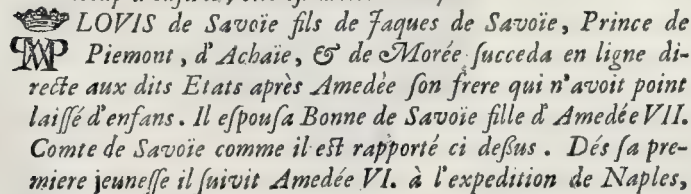 LOVIS de Savoïe fils de Jaques de Savoïe, Prince de
Piemont, d'Achaïe, & de Morée succeda en ligne di-
recte aux dits Etats après Amedée son frere qui n'avoit point
laissé d'enfans. Il espousa Bonne de Savoïe fille d'Amedée VII.
Comte de Savoïe comme il est rapporté ci deßus. Dés sa pre-
miere jeunesse il suivit Amedée VI. à l'expedition de Naples,